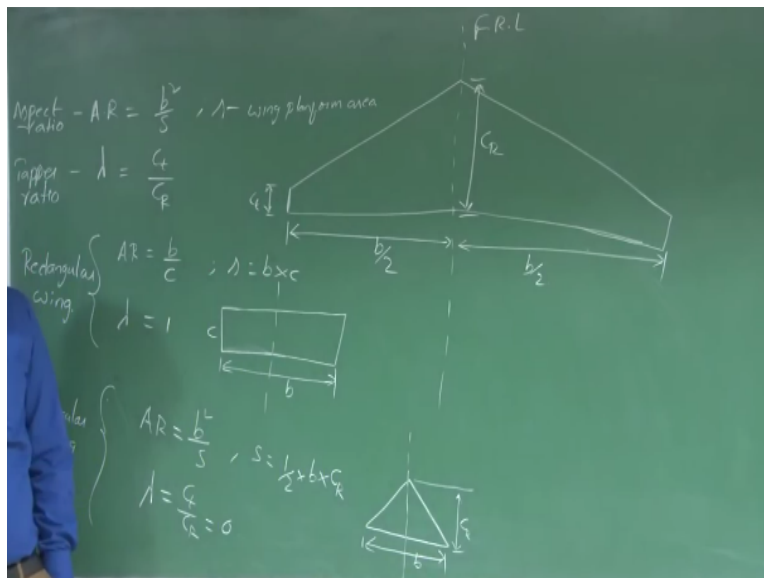 F.R.L
Aspect - AR = b²/S , s - wing planform area
ratio
Tapper - λ = Ct/CR
ratio
CR
Ct
b/2
b/2
Rectangular
wing.
AR = b/c ; s = b×c
λ = 1
c
b
ular
AR = b²/S , S = 1/2 × b × CR
λ = Ct/CR = 0
CR
b